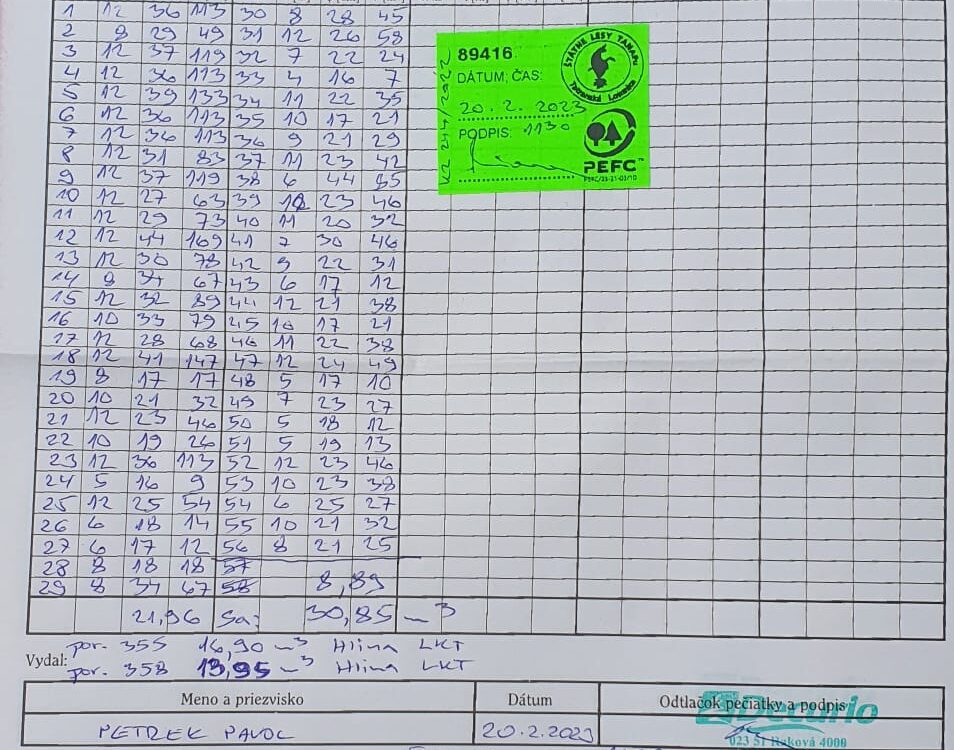 1 12 36 113 30 8 28 45
2 8 29 49 31 12 26 58
3 12 37 119 32 7 22 24
4 12 36 113 33 4 16 7
5 12 39 133 34 11 22 35
6 12 36 113 35 10 17 21
7 12 36 113 36 9 21 29
8 12 31 83 37 11 23 42
9 12 37 119 38 6 44
10 12 27 63 39 23 46
11 12 29 73 40 11 20 32
12 12 44 169 41 7 30 46
13 12 30 78 42 9 22 31
14 8 34 67 43 6 17 12
15 12 32 89 44 12 21 38
16 10 33 79 45 10 17 21
17 12 28 68 46 11 22 38
18 12 41 147 47 12 24 49
19 8 17 17 48 5 17 10
20 10 21 32 49 7 23 27
21 12 23 46 50 5 18 12
22 10 19 26 51 5 19 13
23 12 36 113 52 12 23 46
24 5 16 9 53 10 23 38
25 12 25 54 54 6 25 27
26 6 18 14 55 10 21 32
27 6 17 12 56 8 21 25
28 8 18 18 57
29 8 34 67 58 8,89
21,96 Sa: 30,85 m3
89416
DÁTUM, ČAS:
20. 2. 2023
PODPIS: 1130
ŠTÁTNE LESY TANAPu
Tatranská Lomnica
PEFC™
KZ 244 2022
Vydal: por. 355 16,90 m3 Hlina LKT
por. 358 13,95 m3 Hlina LKT
Meno a priezvisko Dátum Odtlačok pečiatky a podpis
PETREK PAVOL 20.2.2023
Decario
023 51 Raková 4000